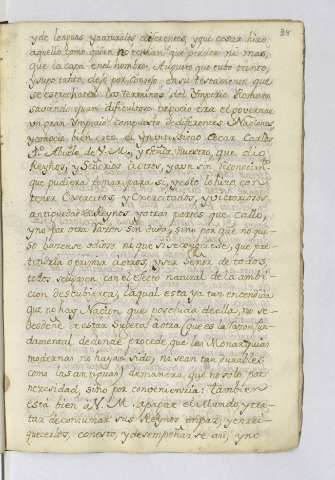 34
y de lenguas y naturales diferentes, y que Cesar hizo
aquello como quien no tenian que perder ni mas,
que la capa en el hombro; Augusto que tubo tanto,
y supo tanto, dejó por Consejo en su testamento que
se estrechasen los terminos del Ymperio Romano
saviendo quan dificultoso negocio era el governar
un gran Ymperio compuesto de diferentes Naciones,
y conocio bien esto el Ynvictissimo Cesar Carlos
5º Abuelo de V. M. y Señor nuestro, que dio
Reynos, y Señorios à otros, y aun sin reconocimto.
que pudiera tomar para si, y esto lo hizo con
tener Exercitos y Exercitados, y victoriosos
antiguedad Reynos y otras partes que callo,
y no por otra razon sin duda, sino por que no qui-
so hacerse odioso ni que se conociese, que pre-
tendia oprimir à otros, y ser Señor de todos,
todos peligran con el efecto natural de la ambi-
cion descubierta, la qual esta ya tan encendida
que no hay Nacion que por chica de ella, no se
desdeñe de estar sugeta à otra (que es la razon fun-
damental de donde procede que las Monarquias
modernas no hayan sido, ni sean tan durables
como las antiguas) de manera, que no solo por
necesidad, sino por conveniencia: tambien
està bien à V. M. apagar el Mundo, y tra-
tar de consumar sus Reynos en paz, y enrri-
quecerlos, con esto, y desempeñarse asi, y no